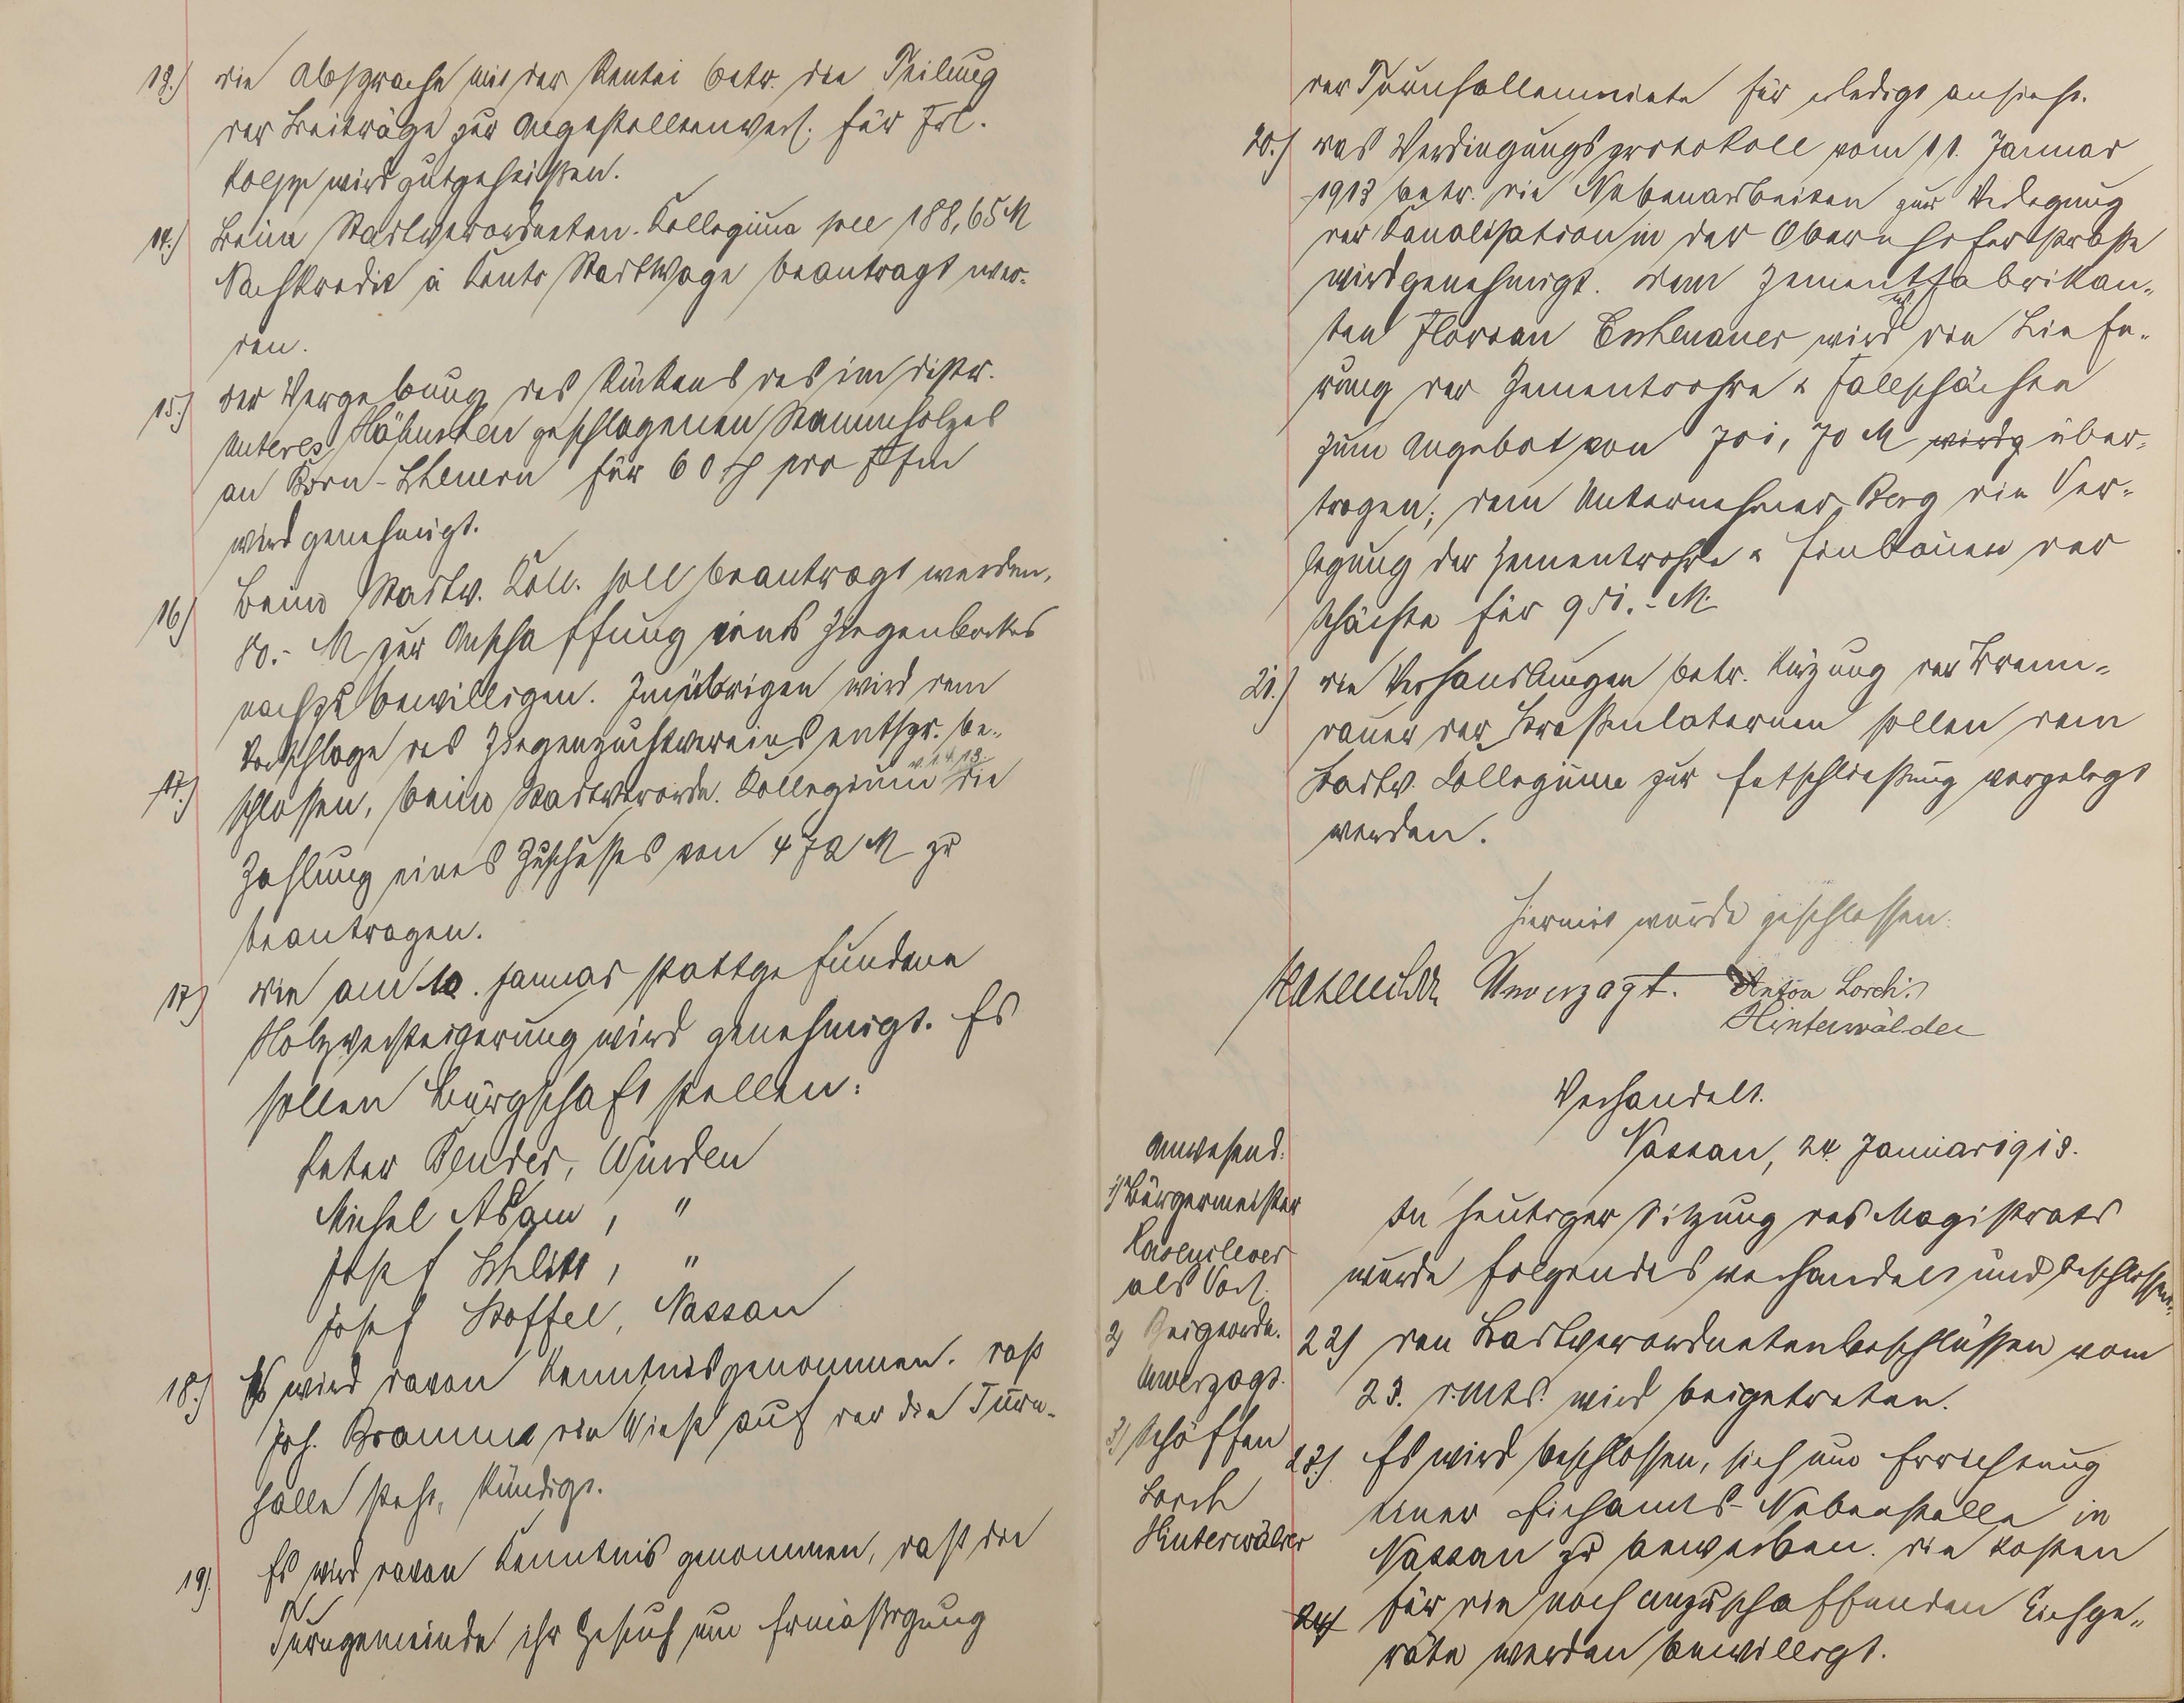 13.) die Absprache mit der Kanlei betr. die Teilung
der Beiträge zur Angestelltenvers. für Frl.
Kolpp wird gutgeheißen.
14.) Beim Stadtverordneten-Kollegium soll 188,65 M
Nachkredit à Konto Stadtwage beantragt wer-
den.
15.) der Vergebung des Rückens des im Distr.
Unteres Höhnchen geschlagenen Stammholzes
an Born-Scheuern für 60 ₰ pro Fstm
wird genehmigt.
16.) Beim Stadtv. Koll. soll beantragt werden,
80.- M zur Anschaffung eines Ziegenbockes
nachzubewilligen. Im übrigen wird dem
Vorschlage des Ziegenzuchtvereins entspr. be-
v. 1.4.13
17.) schlossen, beim Stadtverordn. Kollegium die
Zahlung eines Zuschusses von 472 M zu
beantragen.
17.) die am 10. Januar stattgefundene
Holzversteigerung wird genehmigt. Es
sollen Bürgschaft stellen:
Peter Bender, Winden
Michel Adam, "
Josef Schlitt, "
Josef Stoffel, Nassau
18.) Es wird davon Kenntnis genommen, daß
Joh. Bramm die Wiese auf der die Turn-
halle steht, kündigt.
19.) Es wird davon Kenntnis genommen, daß die
Turngemeinde ihr Gesuch um Ermäßigung
der Turnhallenmiete für erledigt ansieht.
20.) das Verdingungsprotokoll vom 11. Januar
1913 betr. die Nebenarbeiten zur Verlegung
der Kanalisation in der Obernhoferstraße
wird genehmigt. dem Zementfabrikan-
ten Florian Eschenauer wird die Liefe-
rung der Zementrohre u Fallschächte
zum Angebot von 701,70 M wird über-
tragen; dem Unternehmer Berg die Ver-
legung der Zementrohre u Einbauen der
Schächte für 951.- M.
21.) die Verhandlungen betr. Kürzung der Brenn-
dauer der Straßenlaternen sollen dem
Stadtv. Kollegium zur Entschließung vorgelegt
werden.
Hiermit wurde geschlossen.
Hasenclever Unverzagt. Anton Lorch.
Hinterwälder
Verhandelt.
Nassau, 24. Januar 1913.
Anwesend:
1) Bürgermeister
Hasenclever
als Vors.
2) Beigeordn.
Unverzagt.
3) Schöffen
Lorch
Hinterwälder
In heutiger Sitzung des Magistrats
wurde folgendes verhandelt und beschlossen:
22) den Stadtverordnetenbeschlüssen vom
23. d. Mts. wird beigetreten.
23.) Es wird beschlossen, sich um Errichtung
einer Eichamts-Nebenstelle in
Nassau zu bewerben. die Kosten
24) für die noch anzuschaffenden Eichge-
räte werden bewilligt.